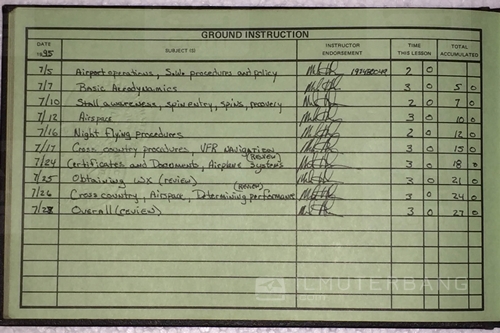 GROUND INSTRUCTION
DATE 1995 SUBJECT (S) INSTRUCTOR ENDORSEMENT TIME THIS LESSON TOTAL ACCUMULATED
7/5 Airport operations, Safe procedures and policy 2 0
7/7 Basic Aerodynamics 3 0 5 0
7/10 Stall awareness, spin entry, spins, recovery 2 0 7 0
7/12 Airspace 3 0 10 0
7/16 Night flying procedures 2 0 12 0
7/17 Cross country procedures, VFR Navigation 3 0 15 0
7/24 Certificates and Documents, Airplane Systems (Review) 3 0 18 0
7/25 Obtaining WX (review) 3 0 21 0
7/26 Cross country, Airspace, Determining performance (Review) 3 0 24 0
7/28 Overall (review) 3 0 27 0